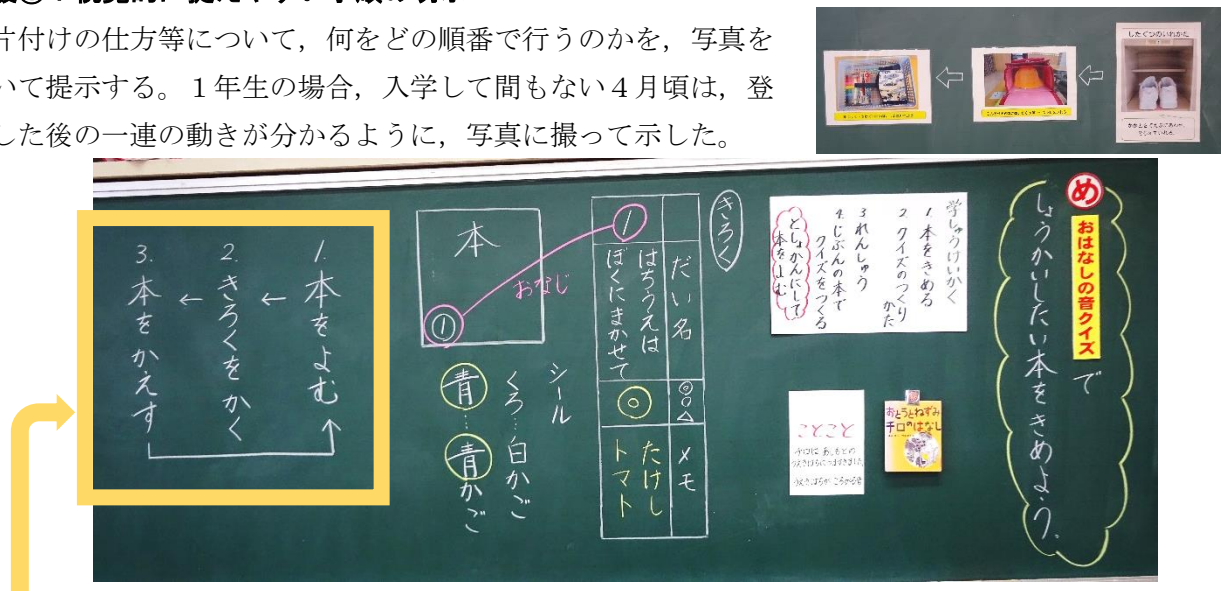 片付けの仕方等について，何をどの順番で行うのかを，写真を
いて提示する。１年生の場合，入学して間もない４月頃は，登
した後の一連の動きが分かるように，写真に撮って示した。
したぐつのいれかた
め
おはなしの音クイズ
で
しょうかいしたい本をきめよう。
学しゅうけいかく
1. 本をきめる
2 クイズのつくりかた
3 れんしゅう
4. じぶんの本で
クイズをつくる
としょかんにして
本をよむ
ことこと
おとうとねずみ
チロのはなし
きろく
だい名
◎○△
メモ
①
はちうえは
ぼくにまかせて
◎
たけし
トマト
本
①
おなじ
シール
くろ…白かご
青…青かご
1. 本をよむ
←
2. きろくをかく
←
3. 本をかえす